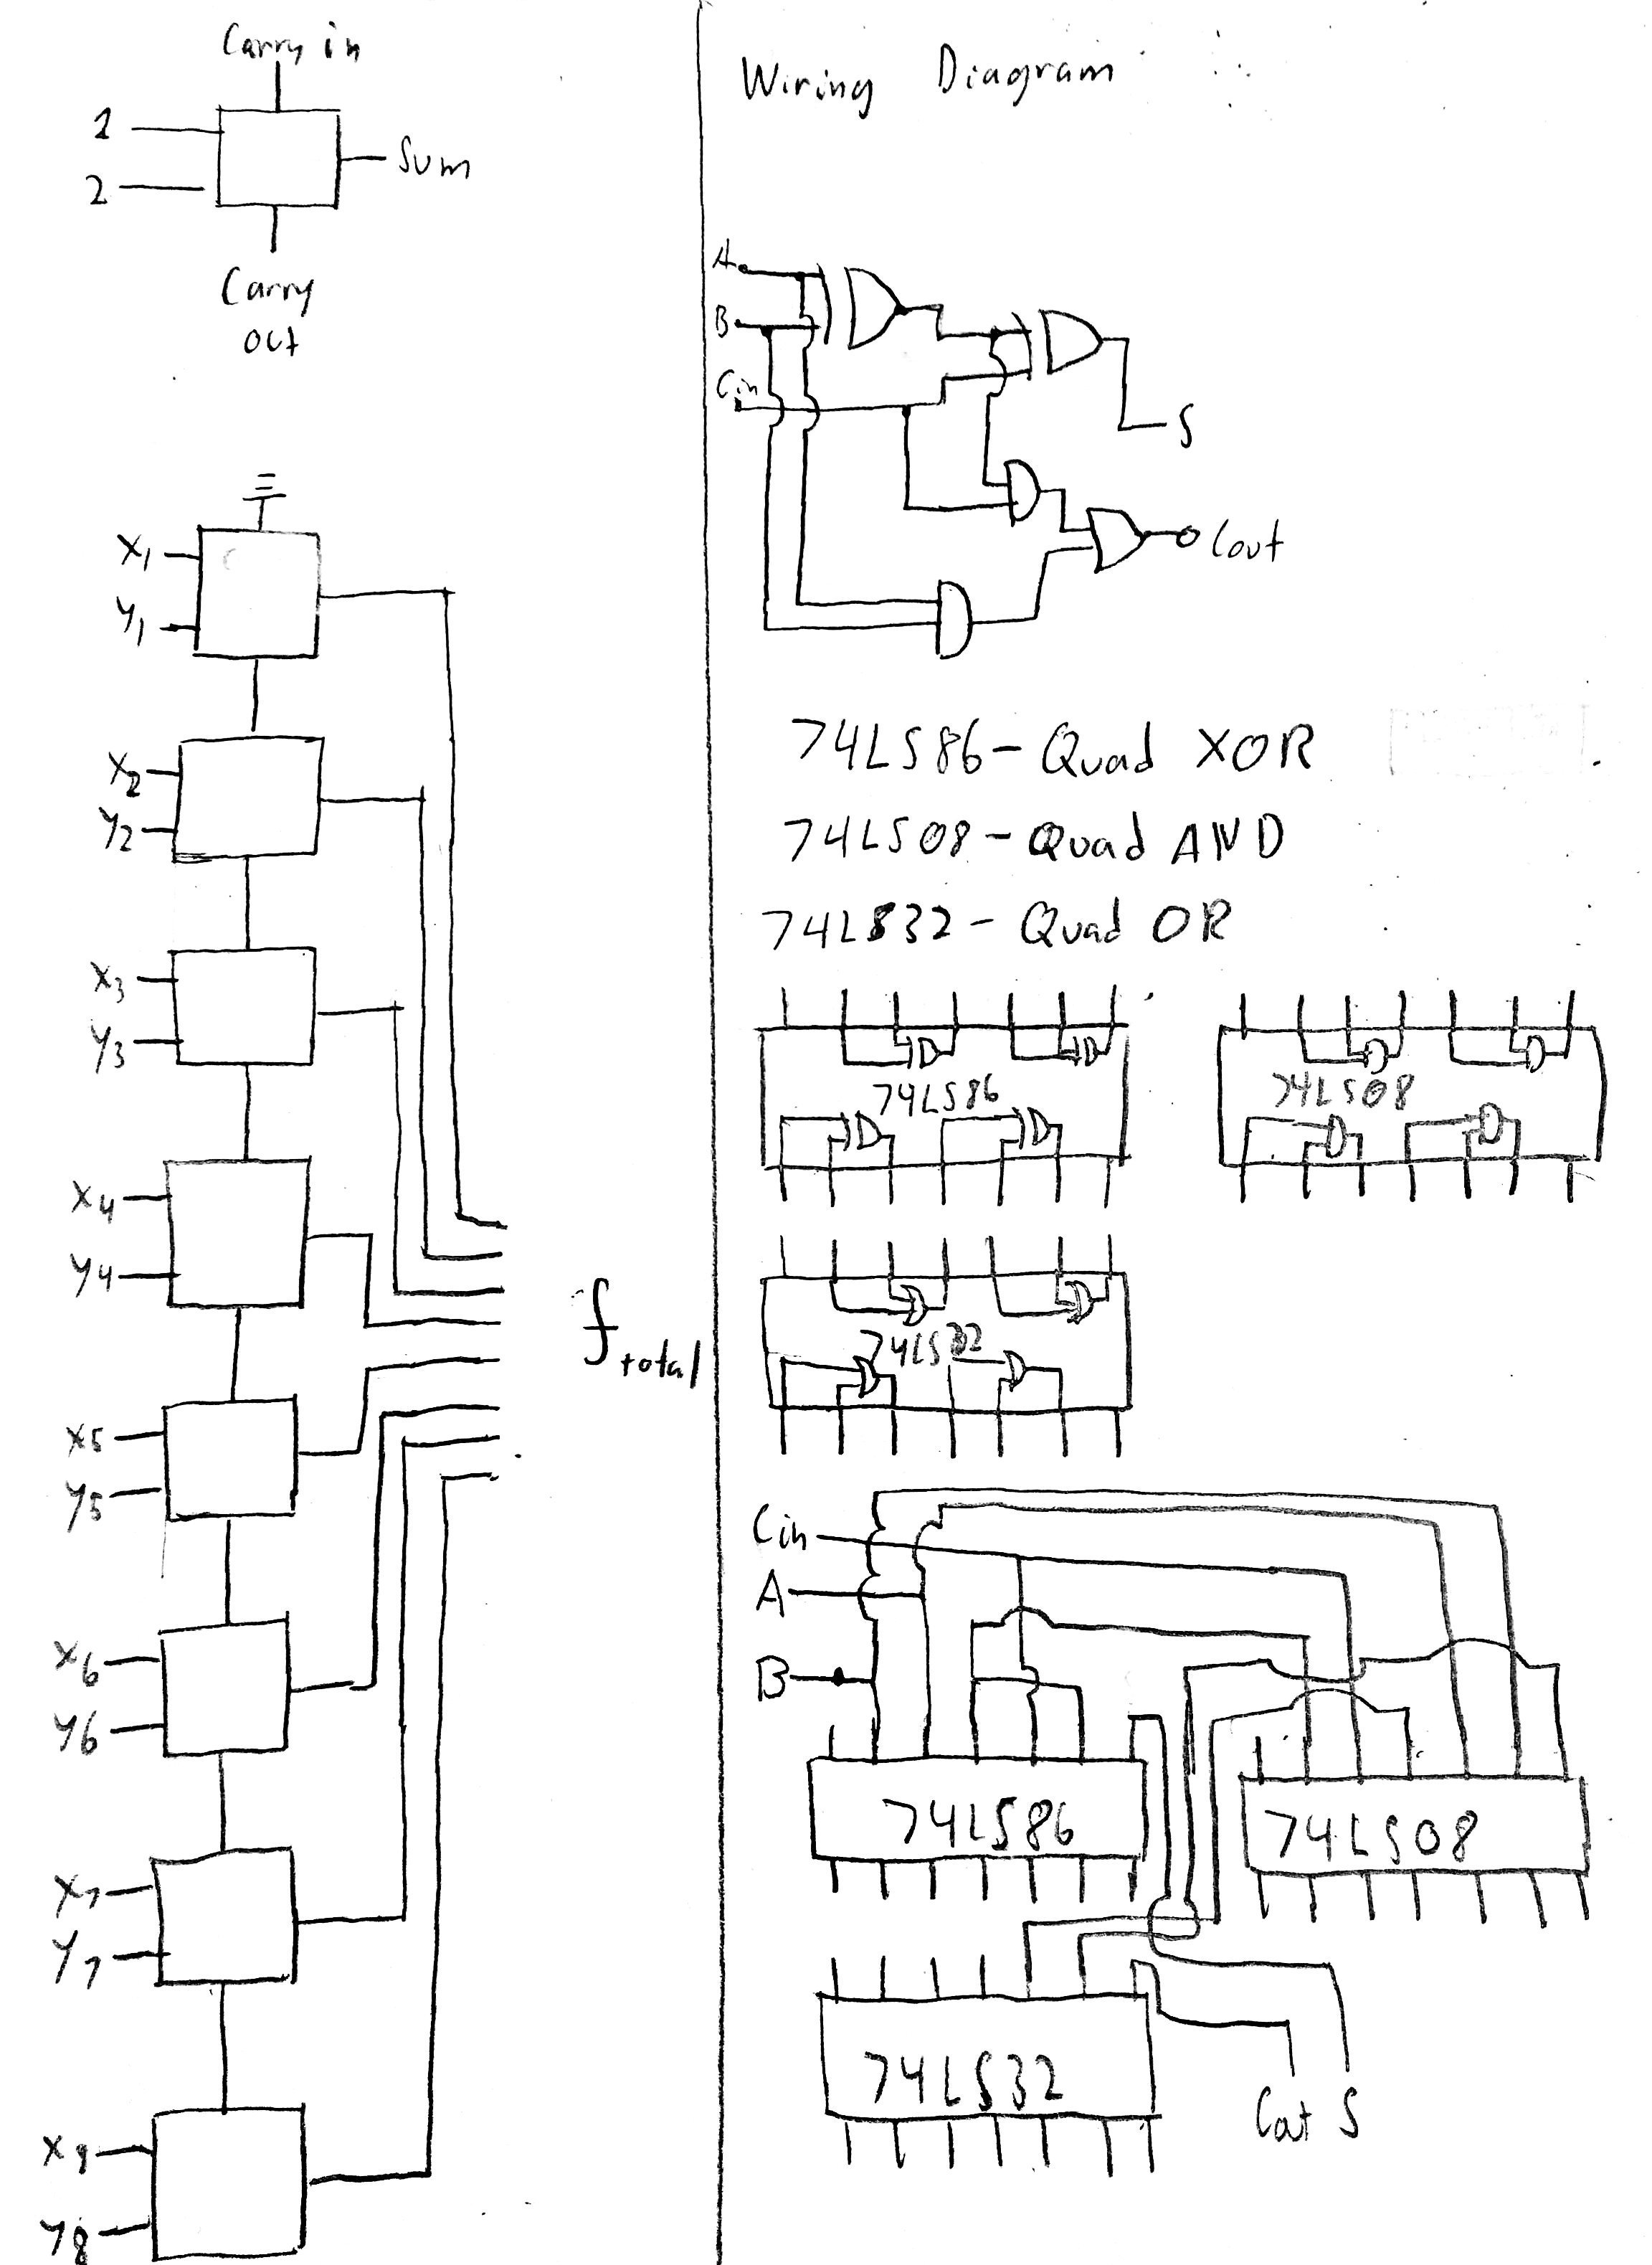 Carry in
1
2
Sum
Carry
out
X1
Y1
X2
Y2
X3
Y3
X4
Y4
X5
Y5
X6
Y6
X7
Y7
X8
Y8
f total
Wiring Diagram
A
B
Cin
S
Cout
74LS86 - Quad XOR
74LS08 - Quad AND
74LS32 - Quad OR
74LS86
74LS08
74LS32
Cin
A
B
74LS86
74LS08
74LS32
Cout S